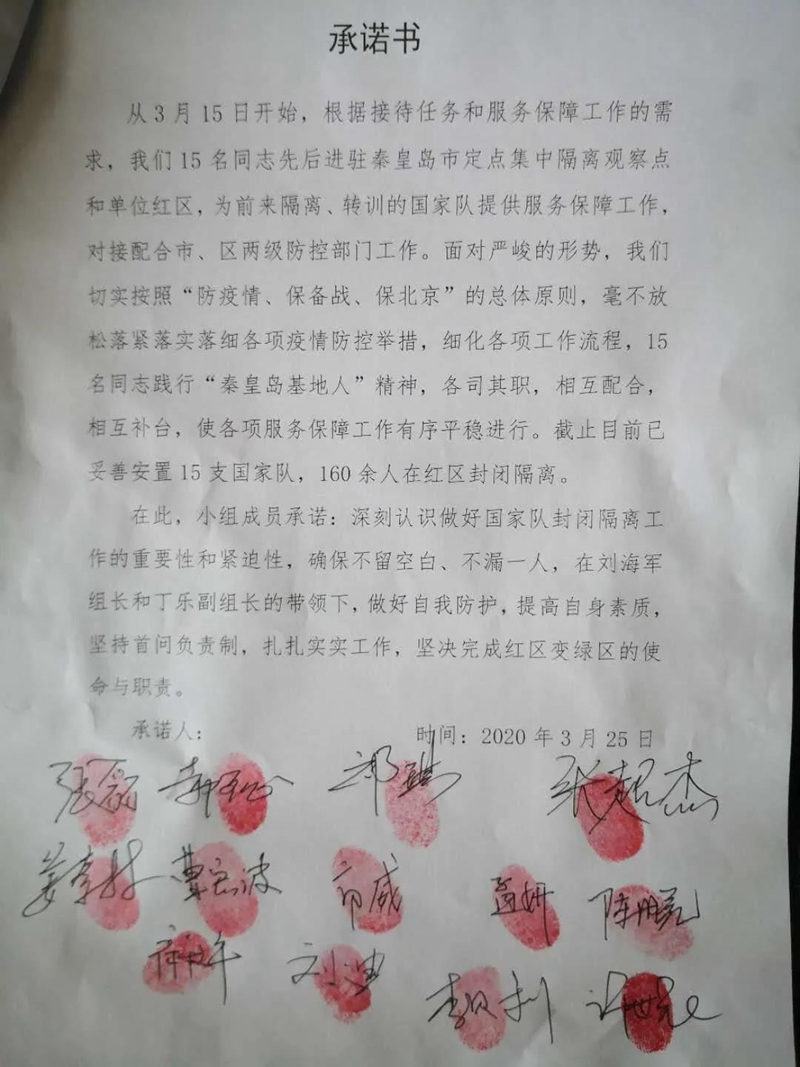 承诺书
从3月15日开始，根据接待任务和服务保障工作的需
求，我们15名同志先后进驻秦皇岛市定点集中隔离观察点
和单位红区，为前来隔离、转训的国家队提供服务保障工作，
对接配合市、区两级防控部门工作。面对严峻的形势，我们
切实按照“防疫情、保备战、保北京”的总体原则，毫不放
松落紧落实落细各项疫情防控举措，细化各项工作流程，15
名同志践行“秦皇岛基地人”精神，各司其职，相互配合，
相互补台，使各项服务保障工作有序平稳进行。截止目前已
妥善安置15支国家队，160余人在红区封闭隔离。
在此，小组成员承诺：深刻认识做好国家队封闭隔离工
作的重要性和紧迫性，确保不留空白、不漏一人，在刘海军
组长和丁乐副组长的带领下，做好自我防护，提高自身素质，
坚持首问负责制，扎扎实实工作，坚决完成红区变绿区的使
命与职责。
承诺人： 时间：2020年3月25日
张磊 张超杰
曹宏波 孟妍